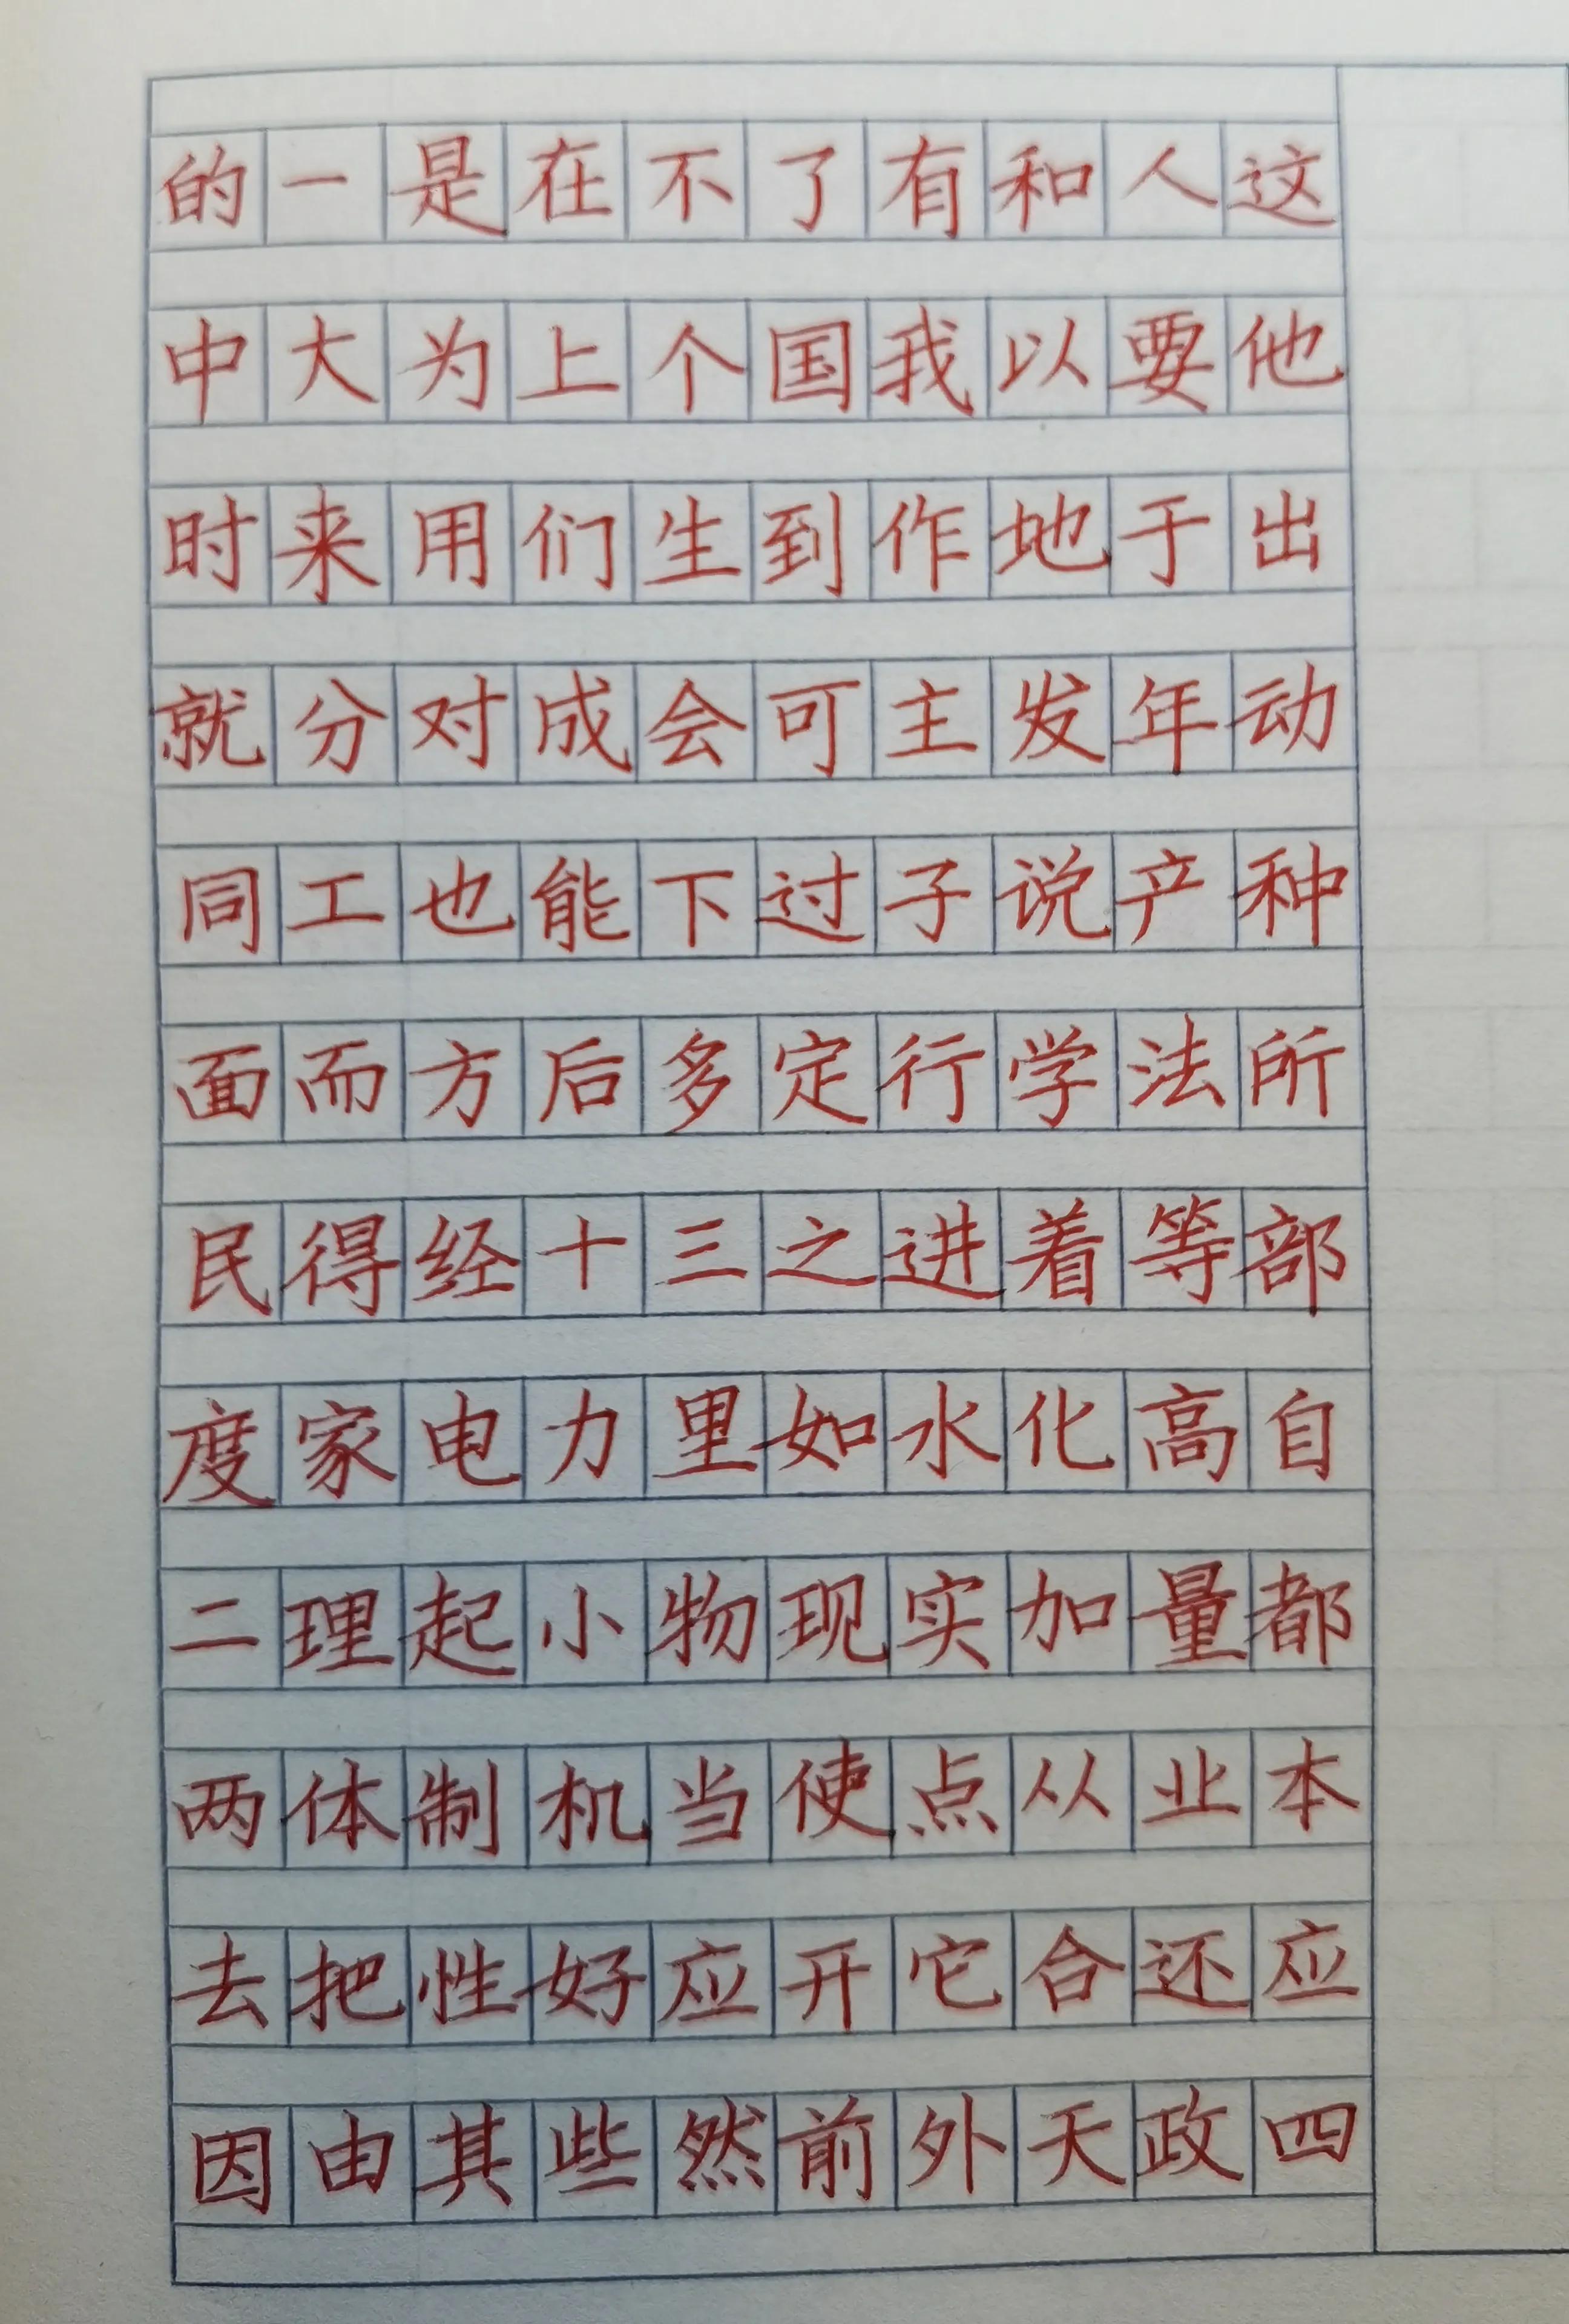 的一是在不了有和人这
中大为上个国我以要他
时来用们生到作地于出
就分对成会可主发年动
同工也能下过子说产种
面而方后多定行学法所
民得经十三之进着等部
度家电力里如水化高自
二理起小物现实加量都
两体制机当使点从业本
去把性好应开它合还应
因由其些然前外天政四